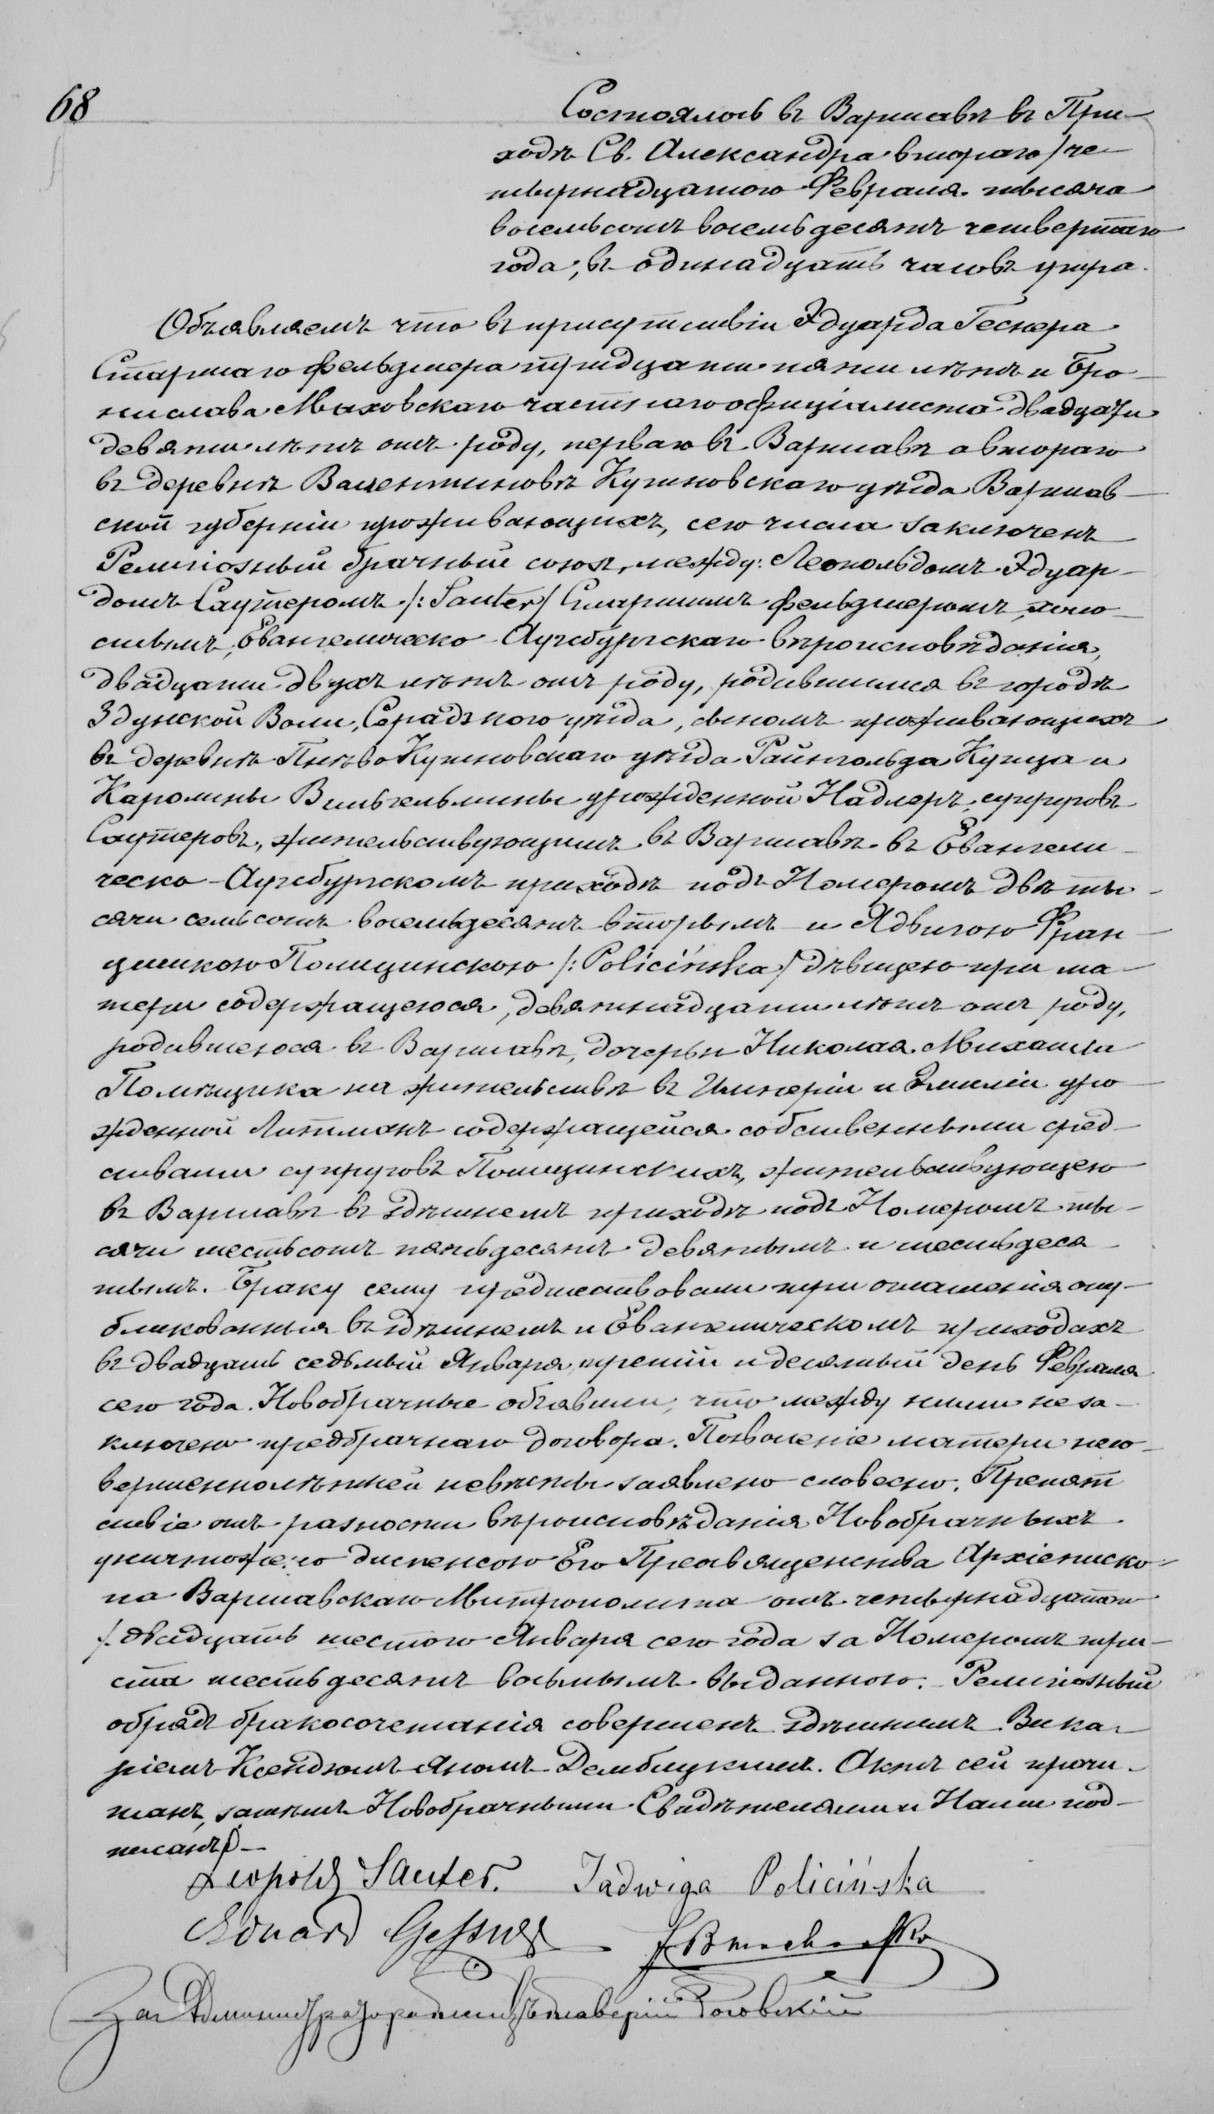 68
Состоялось въ Варшавѣ въ При-
ходѣ Св. Александра втораго /че-
тырнадцатого Февраля тысяча
восемьсотъ восемьдесятъ четвертаго
года, въ одинадцать часовъ утра.
Объявляемъ что въ присутствіи Эдуарда Геснера
Старшаго фельдшера тридцати пяти лѣтъ и Бро-
нислава Маховскаго частнаго оффиціалиста двадцати
девяти лѣтъ отъ роду, перваго въ Варшавѣ а втораго
въ деревнѣ Валентиновѣ Кутновскаго уѣзда Варшав-
ской губерніи проживающихъ, сего числа заключенъ
Религіозный брачный союзъ, между: Леопольдомъ Эдуар-
домъ Саутеромъ /: Sauter/ Старшимъ фельдшеромъ, холо-
стымъ, Евангелическо-Аугсбургскаго вѣроисповѣданія,
двадцати двухъ лѣтъ отъ роду, родившимся въ городѣ
Здунской Воли, Серадзкого уѣзда, сыномъ проживающихъ
въ деревнѣ Кутновскаго уѣзда Райнгольда и
Каролины Вильгельмины урожденной Надлеръ, супруговъ
Саутеровъ, жительствующимъ въ Варшавѣ въ Евангели-
ческо-Аугсбургскомъ приходѣ подъ Номеромъ двѣ ты-
сячи семьсотъ восемьдесятъ вторымъ и Ядвигою Фран-
цишкою Полицинскою /: Policińska/ дѣвицею при ма-
тери содержащеюся, девятнадцати лѣтъ отъ роду,
родившеюся въ Варшавѣ, дочерью Николая Михаила
Помѣщика на жительствѣ въ Имперіи и Эмиліи уро-
жденной Литманъ содержащейся собственными сред-
ствами супруговъ Полицинскихъ, жительствующею
въ Варшавѣ въ здѣшнемъ приходѣ подъ Номеромъ ты-
сячи шестьсотъ пятьдесятъ девятымъ и шестьдеся-
тымъ. Браку сему предшествовали три оглашенія опу-
бликованныя въ здѣшнемъ и Евангелическомъ приходахъ
въ двадцать седьмый Января, третій и десятый день Февраля
сего года. Новобрачные объявили, что между ними не за-
ключено предбрачнаго договора. Позволеніе матери несо-
вершеннолѣтней невѣсты заявлено словесно. Препят-
ствіе отъ разности вѣроисповѣданія Новобрачныхъ
уничтожено диспенсою Его Преосвященства Архіеписко-
па Варшавскаго Митрополита отъ четырнадцатаго
/двадцать шестого Января сего года за Номеромъ три-
ста шестьдесятъ восьмымъ выданною. Религіозный
обрядъ бракосочетанія совершенъ здѣшнимъ Вика-
ріемъ Ксендзомъ Яномъ Дембицкимъ. Актъ сей прочи-
танъ, затѣмъ Новобрачными Свидѣтелями и Нами под-
писанъ. —
Leopold Sauter. Jadwiga Policińska
Eduard Gessner
За Администратора